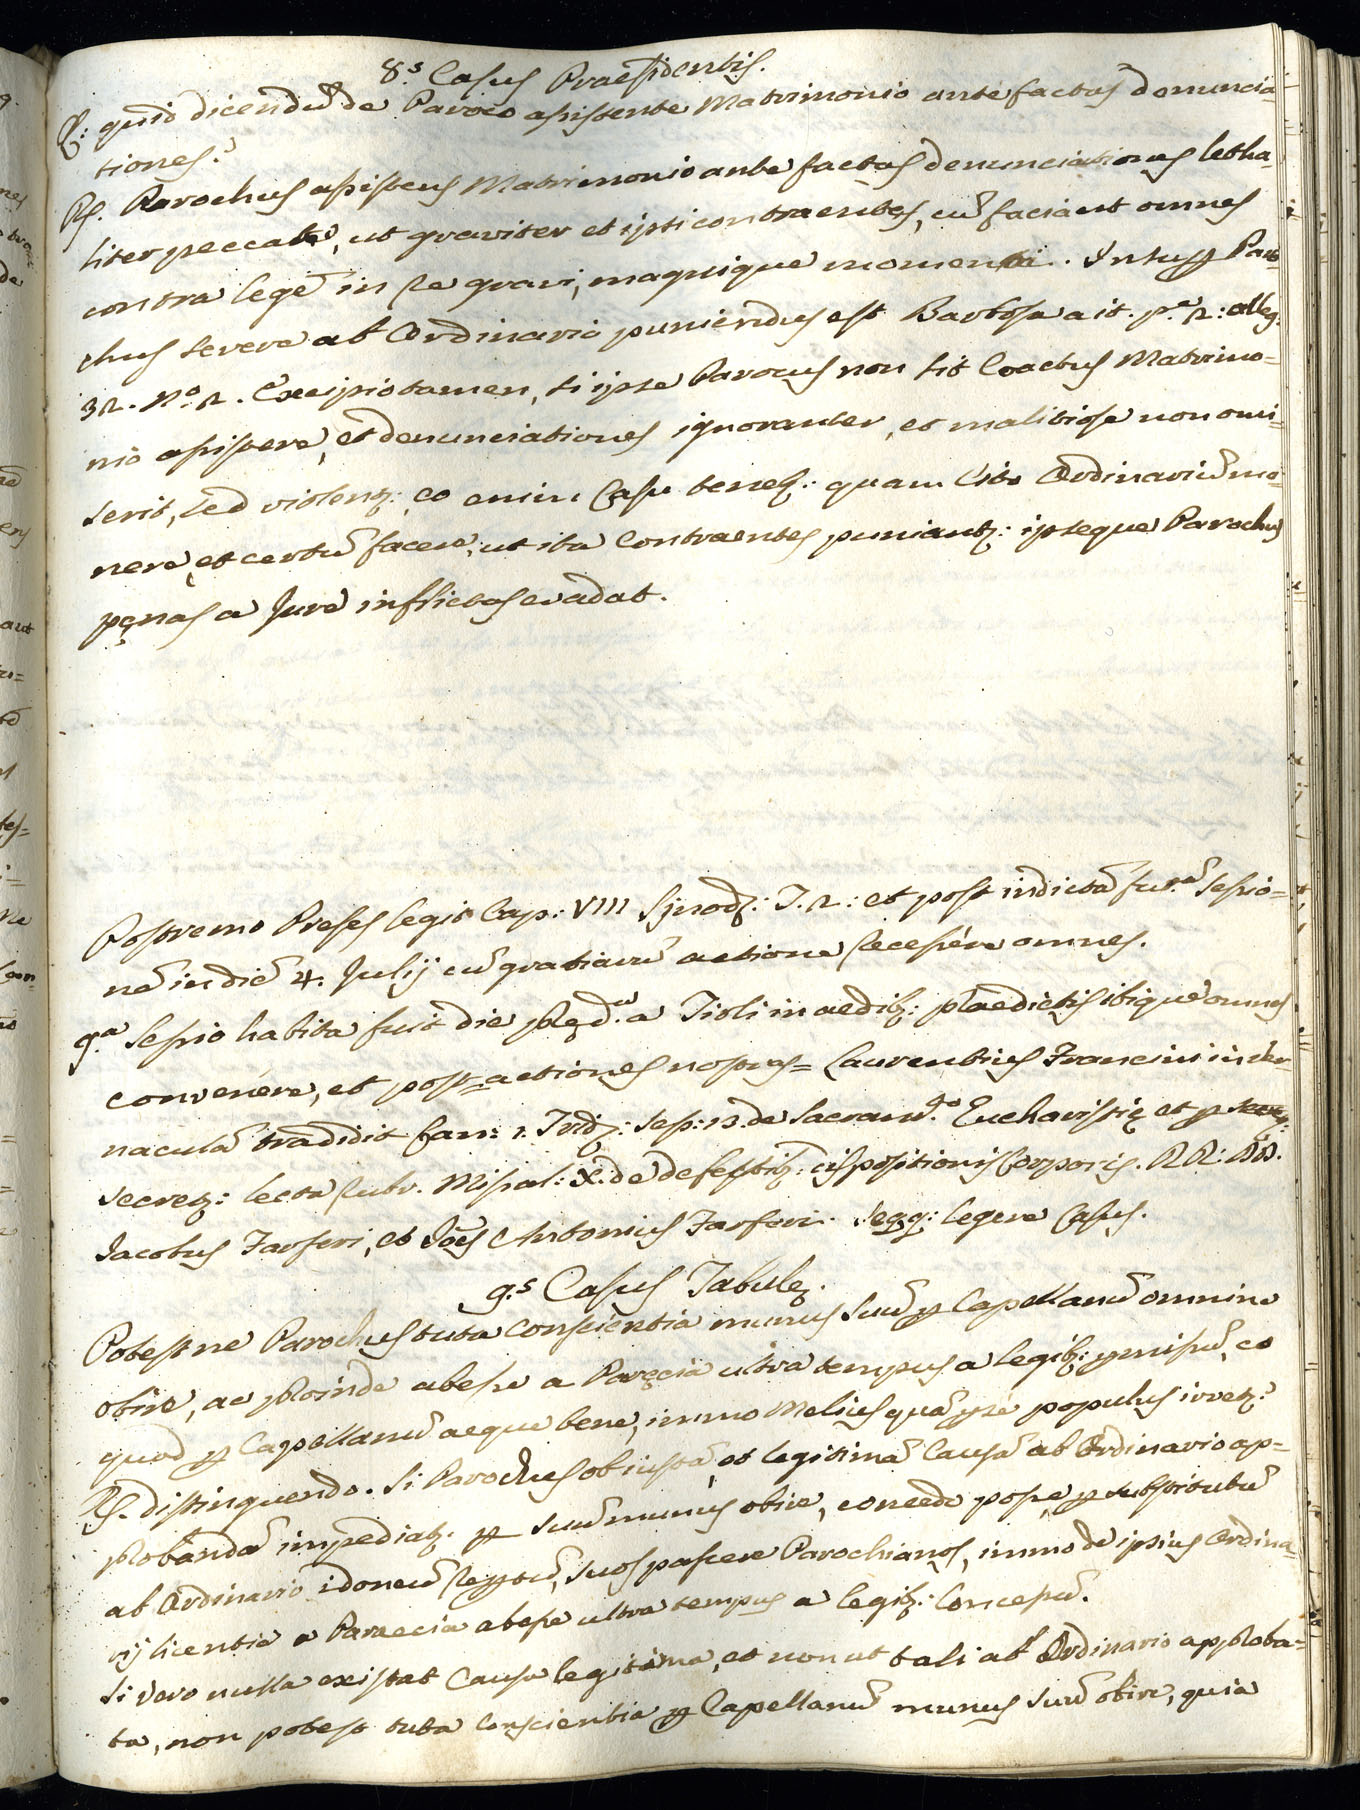 8.s Casus Praesidentis.
Q: quid dicendũ de Paroco assistente Matrimonio ante factas denuncia-
tiones?
R. Parochus assistens Matrimonio ante factas denunciationes letha-
liter peccat, ut graviter et ipsi contraentes, cũ faciant omnes
contra legẽ in re gravi, magnique momenti. Paro-
chus severe ab Ordinario puniendus est Barbosa ait. p.e 2: alleg.
32. N.o 2. Excipio tamen, si ipse Parocus non sit Coactus Matrimo-
nio assistere, et denunciationes ignoranter, et malitiose non omi-
serit, sed violentr: eo enim Casu tenetr: quam cito Ordinariũ mo-
nere, et certũ facere, ut ita Contraentes puniantr: ipseque Parochus
pęnas a Jure inflictas evadat.
Postremo Preses legit Cap: VIII Sÿnod: T. 2: et post indictã fut.ã sessio-
nẽ in diẽ 4. Julij cũ gratiarũ actione recessére omnes.
9.a Sessio habita fuit die pręd.a a Tioli in aedib: praedictis ibique omnes
convenére, et post-actiones nostras= Laurentius Francini in ver-
naculã tradidit Can: 1. Trid: Ses: 13. de Sacram.to Eucharistię et p
Secret: lecta rubr. Missal: X. de defectib: dispositionis Corporis. RR: DD.
Jacobus Farferi, et Joẽs Antonius Farferi. seqq: legere Casus.
9.s Casus Tabulę.
Potest ne Parochus tuta conscientia munus suũ p Capellanũ omnino
obire, ac proinde abesse a Paręcia ultra tempus a legib: pmissũ, eo
quod p Capellanũ aeque bene, immo Melius quã p se populus iuvetr?
R. distinguendo. Si Parochus ob iustã, et legitimã Causã ab Ordinario ap-
probandã impediatr. p suũ munus obire, concedo posse p substitutũ
ab Ordinario idoneũ reptũ, suos pascere Parochianos, immo de ipsius Ordina-
rij licentia a Paraecia abesse ultra tempus a legib: Concessũ.
Si vero nulla existat Causa legitima, et non ut tali ab Ordinario approba-
ta, non potest tuta Conscientia p Capellanũ munus suũ obire, quia